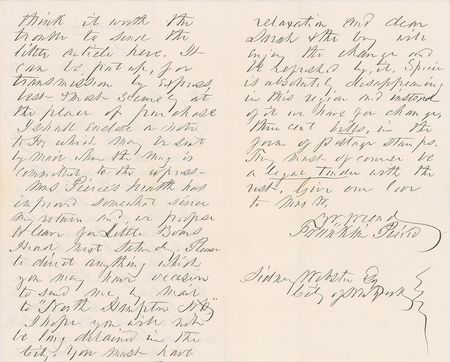 think it worth the
trouble to send the
little article here. It
can be put up, for
transmission by express,
best & most securely at
the place of purchase
I shall enclose a note
to H, which may be sent
by mail when the mug is
committed to the express.
Mrs Pierce's health has
improved somewhat since
my return and we propose
to leave for Little Boars
Head next Saturday. Please
to direct anything which
you may have occasion
to send me by mail
to "North Hampton N.H."
I hope you will not
be long detained in the
City. You must have
relaxation and dear
Sarah & the boy will
enjoy the change and
be refreshed by it. Specie
is absolutely disappearing
in this region and instead
of it we have for change,
three cent bills, in the
form of postage stamps.
They must of course be
a legal tender with the
rest. Give our love
to Mrs W.
Yr. friend
Franklin Pierce
Sidney Webster Esq
City of New York